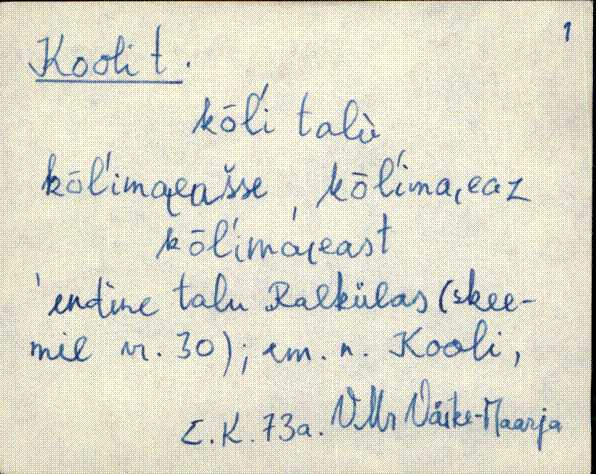 1
Kooli t.
kōĺi talù
kōĺimaɟeašse, kōĺimaɟeaz
kōĺimaɟeast
'endine talu Ralkülas (skee-
mil nr. 30); em. n. Kooli,
E.K. 73a. VMr Väike-Maarja